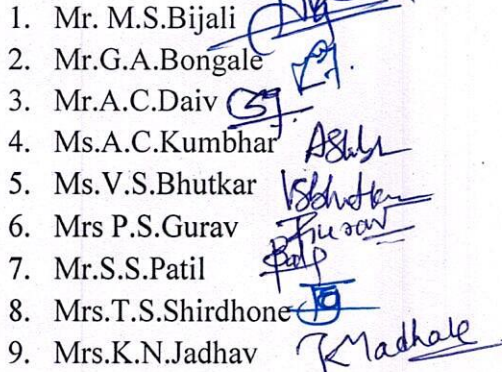 1. Mr. M.S.Bijali
2. Mr.G.A.Bongale
3. Mr.A.C.Daiv
4. Ms.A.C.Kumbhar
5. Ms.V.S.Bhutkar VSBhutkar
6. Mrs P.S.Gurav Gurav
7. Mr.S.S.Patil
8. Mrs.T.S.Shirdhone
9. Mrs.K.N.Jadhav KMadhale